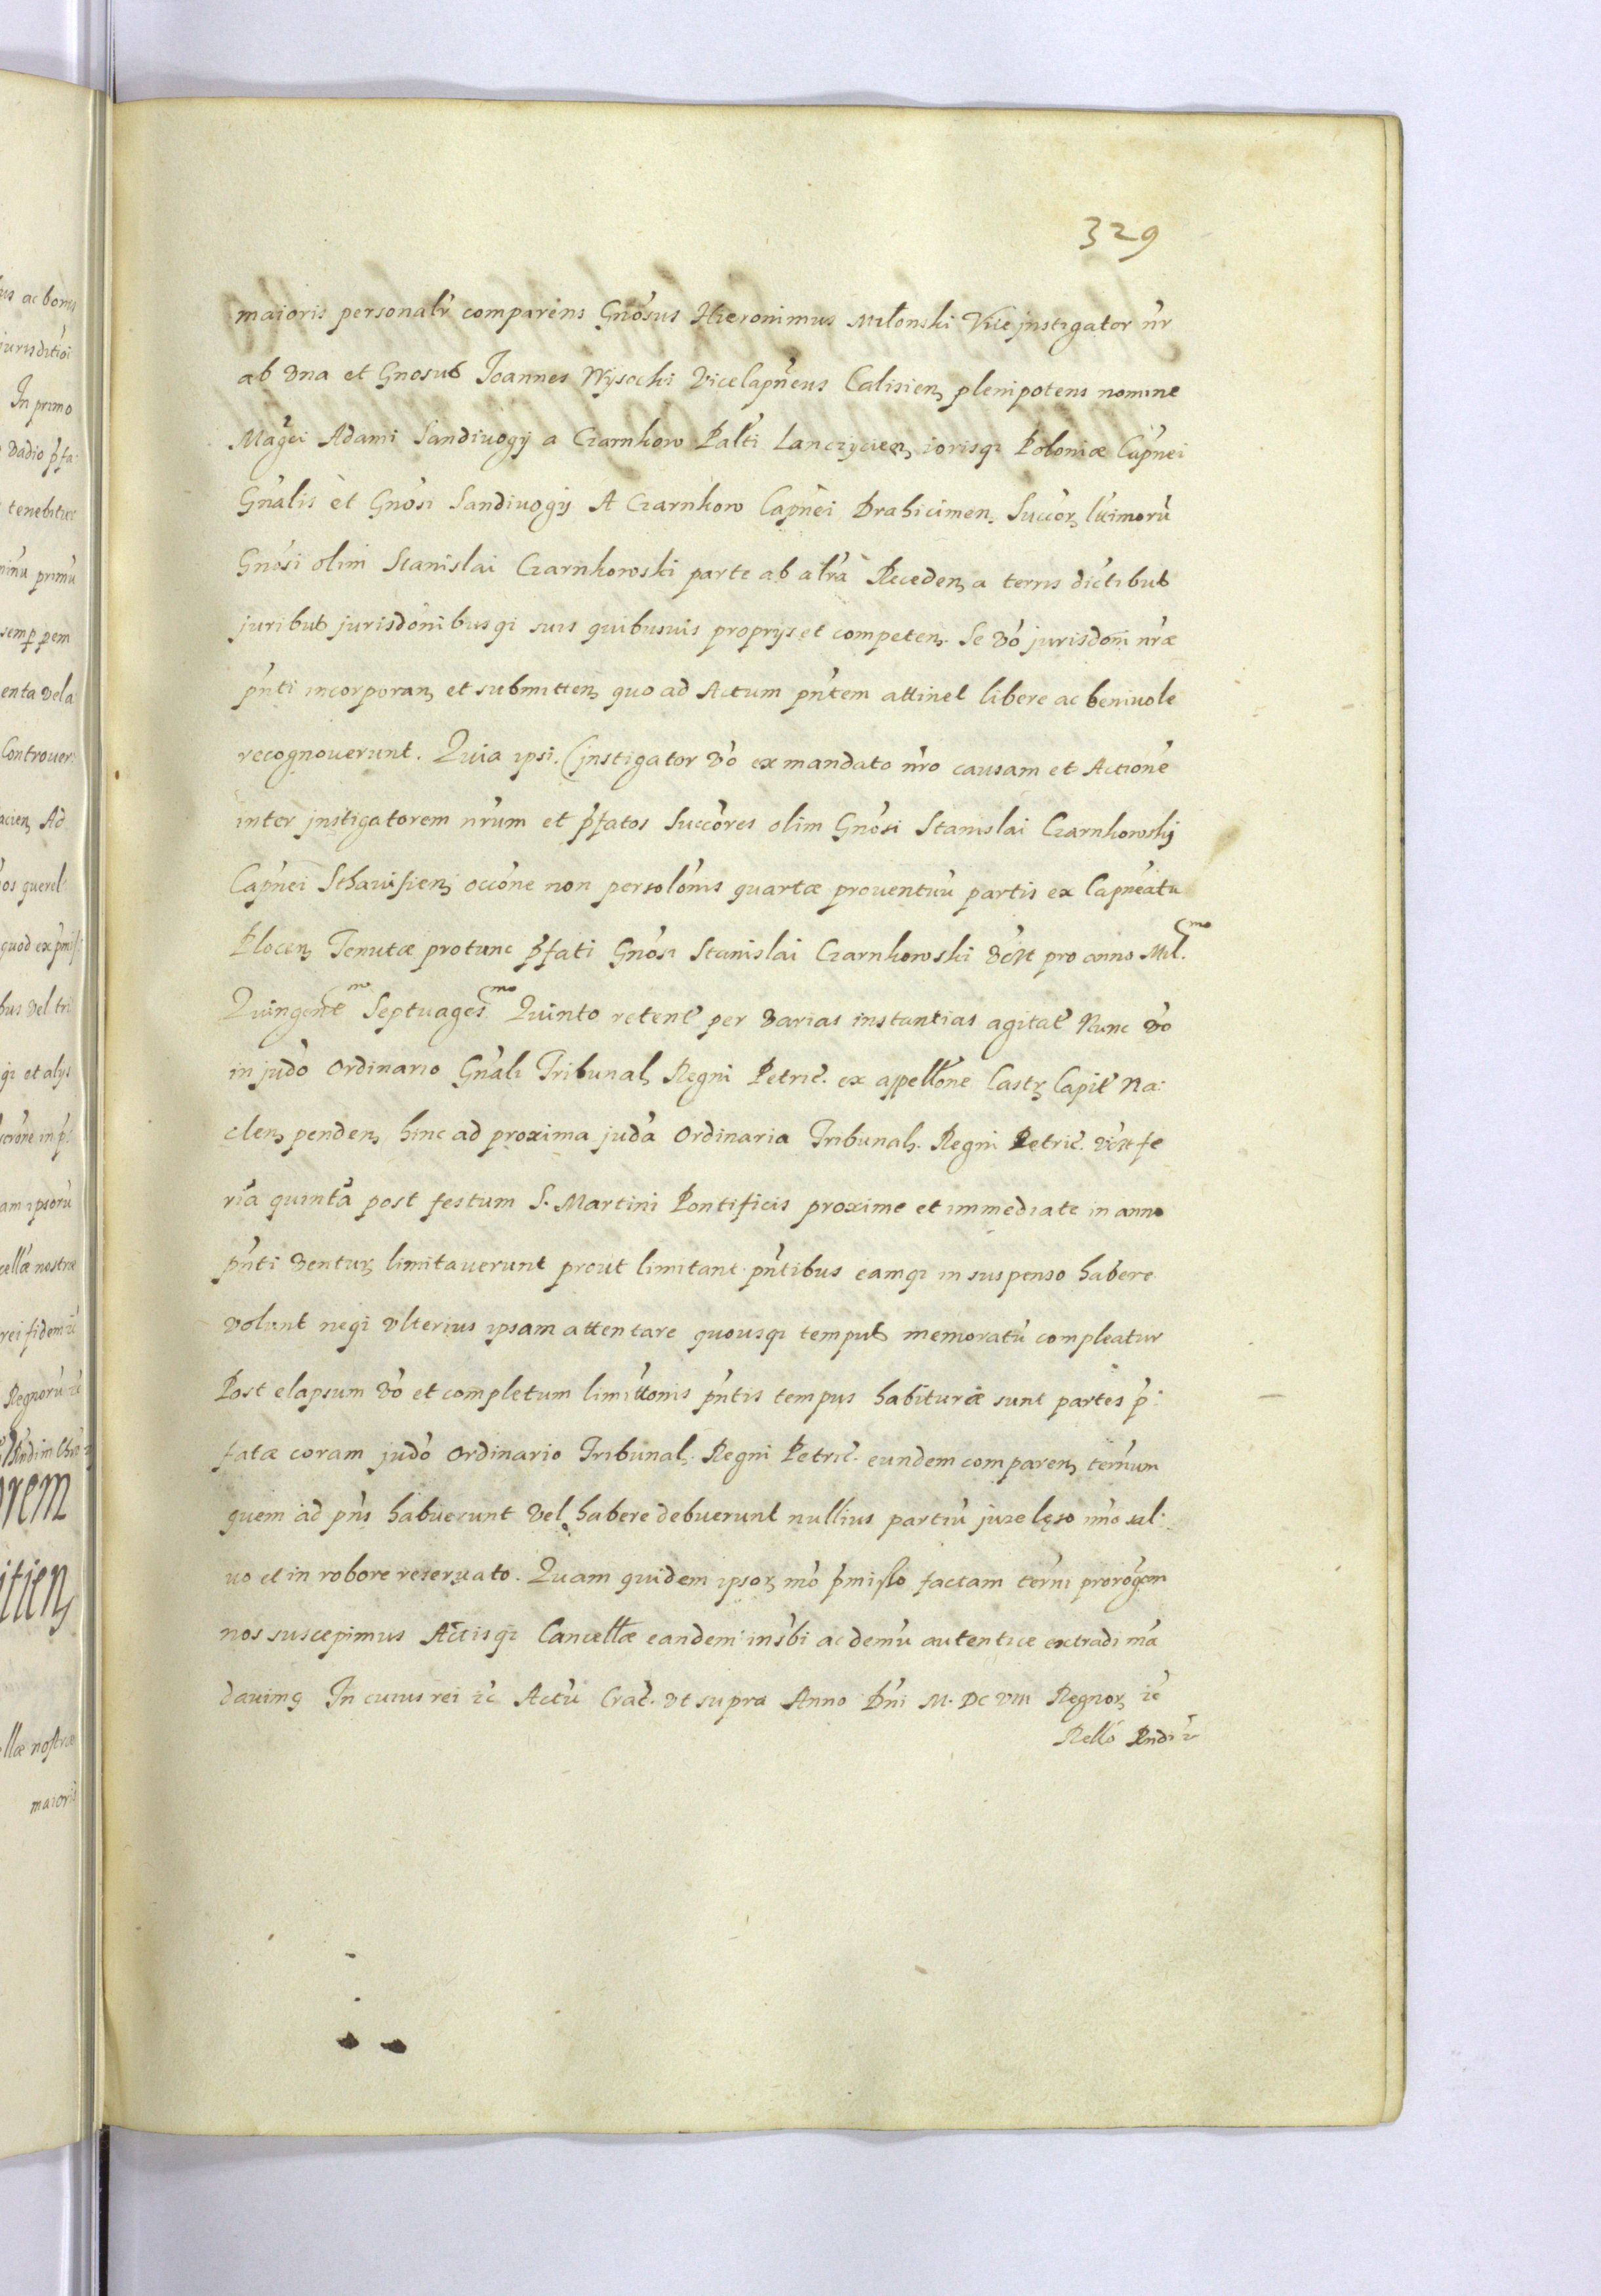 329
maioris personalr̃ comparens Gnosus Hieronimus Miłonski Vice jnstigator nr̃
ab vna et Gnosus Joannes Wysocki Vicecapneus Calisien, plenipotens nomine
Magci Adami Sandiuogij a Czarnkow Palti Lancziycien, iorisq Poloniæ Capnei
Gnalis et Gnosi Sandiuogij A Czarnkow Capnei Drahicimen, Succor,
Gnosi olim Stanislai Czarnkowski parte ab altra Receden, a terris
juribus jurisdonibusq suis quibusuis proprijs et competen. Se vo jurisdoni nræ
pnti incorporan, et submitten, quo ad Actum pntem attinet libere ac beniuole
recognouerunt. Quia ipsi. (jnstigator vo ex mandato nro causam et Actione
inter jnstigatorem nrum et pfatos Succores olim Gnosi Stanislai Czarnkowskj
Capnei occone non persolonis quartæ prouentuu partis ex Capneatu
Plocen, Tenutæ protunc pfati Gnosi Stanislai Czarnkowski vczt pro anno Mil.mo
Quingentmo Septuagesmo Quinto retent per varias instantias agitat Nunc vo
in judo Ordinario Gnali Tribunal, Regni Petric. ex appellone Castr, Capit Na:
clen, penden, hinc ad proxima juda Ordinaria Tribunal. Regni Petric. vczt fe
ria quinta post festum S. Martini Pontificis proxime et immediate in anno
pnti ventur, limitauerunt prout limitant pntibus eamq in suspenso habere
volunt neq vlterius ipsam attentare quousq tempus memoratu compleatur
Post elapsum vo et completum limittonis pntis tempus habituræ sunt partes p:
fatæ coram judo Ordinario Tribunal, Regni Petric. eundem comparen, ternun
quem ad pns habuerunt vel habere debuerunt nullius partiu jure lęso imo sal:
uo et in robore reseruato. Quam quidem ipsor, mo pmisso factam terni prorogem
nos suscepimus Actisq Cancellæ eandem insbi ac demu autentice extradi ma
dauimq In cuius rei zc Actu Crac. vt supra Anno Dni M. DC VIII Regnor, zc
Rello